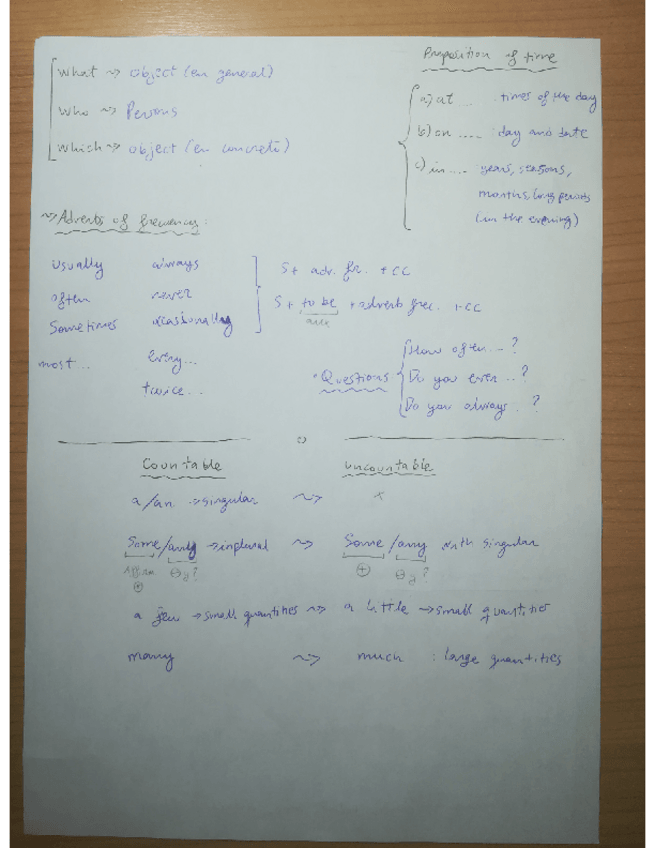 What ~> object (en general)
Who ~> Persons
Which ~> object (en concreto)
Preposition of time
a) at ... : times of the day
b) on ..... : day and date
c) in .... years, seasons,
months, long periods
(in the evening)
~> Adverbs of frecuency:
usually always
often never
Sometimes ocasionally
most... Every...
twice...
S + adv. fr. + CC
S + to be + adverb frec. + CC
aux
• Questions
How often ... ?
Do you ever ...?
Do you always . ?
Countable Uncountable
a/an -> singular ~> x
Some/any -> in plural ~> Some/any with singular
⊕ ⊖ y ? ⊕ ⊖ y ?
a few -> small quantities ~> a little -> small quantities
many ~> much : large quantities